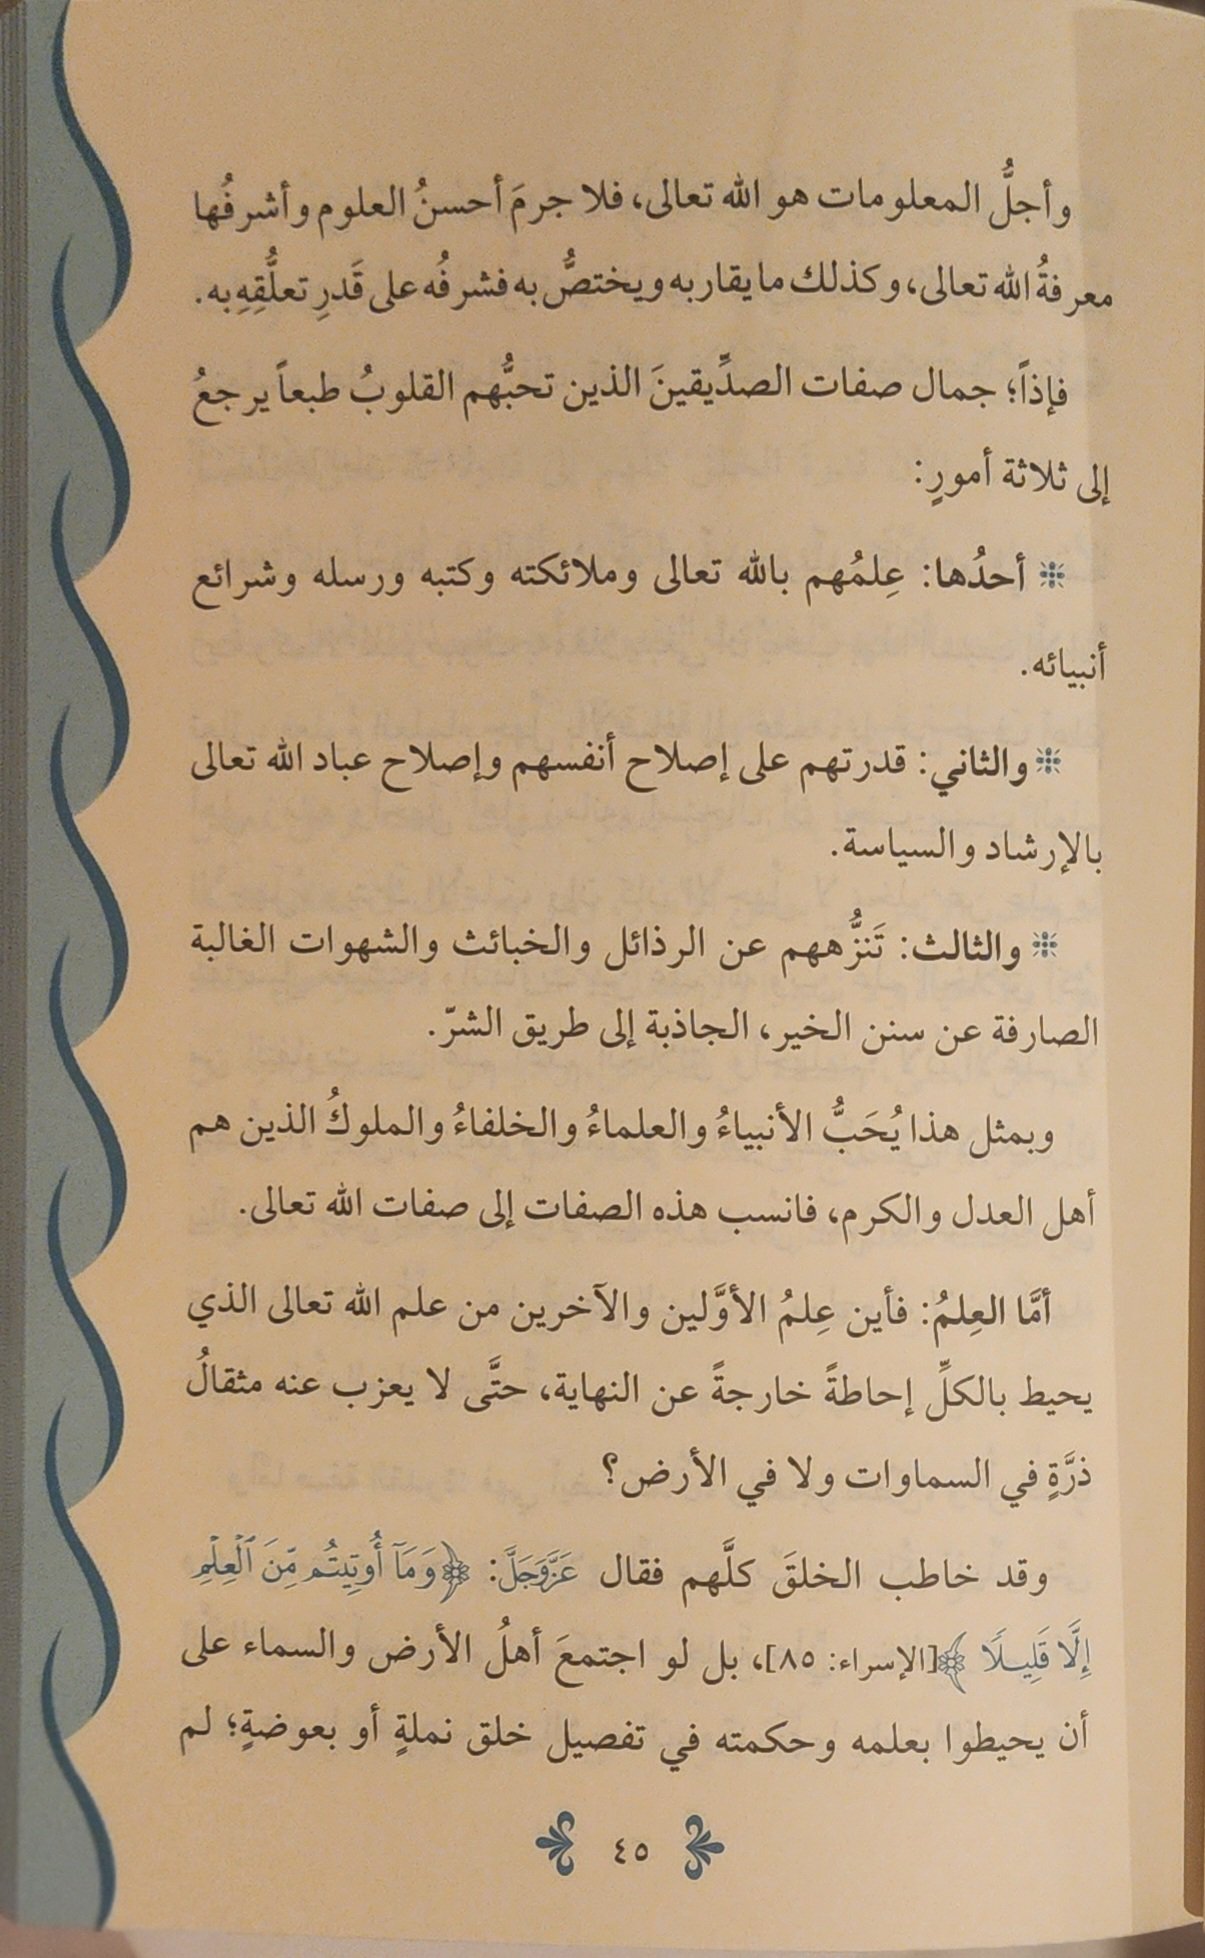 وأجلُّ المعلومات هو الله تعالى، فلا جرمَ أحسنُ العلوم وأشرفُها
معرفةُ الله تعالى، وكذلك ما يقاربه ويختصُّ به فشرفُه على قَدرِ تعلُّقِهِ به.
فإذاً؛ جمال صفات الصدِّيقينَ الذين تحبُّهم القلوبُ طبعاً يرجعُ
إلى ثلاثة أمورٍ:
أحدُها: عِلمُهم بالله تعالى وملائكته وكتبه ورسله وشرائع
أنبيائه.
والثاني: قدرتهم على إصلاح أنفسهم وإصلاح عباد الله تعالى
بالإرشاد والسياسة.
والثالث: تَنزُّههم عن الرذائل والخبائث والشهوات الغالبة
الصارفة عن سنن الخير، الجاذبة إلى طريق الشرّ.
وبمثل هذا يُحَبُّ الأنبياءُ والعلماءُ والخلفاءُ والملوكُ الذين هم
أهل العدل والكرم، فانسب هذه الصفات إلى صفات الله تعالى.
أمَّا العِلمُ: فأين عِلمُ الأوَّلين والآخرين من علم الله تعالى الذي
يحيط بالكلِّ إحاطةً خارجةً عن النهاية، حتَّى لا يعزب عنه مثقالُ
ذرَّةٍ في السماوات ولا في الأرض؟
وقد خاطب الخلقَ كلَّهم فقال عَزَّوَجَلَّ: ﴿وَمَآ أُوتِيتُم مِّنَ ٱلْعِلْمِ
إِلَّا قَلِيلًا﴾ [الإسراء: ٨٥]، بل لو اجتمعَ أهلُ الأرض والسماء على
أن يحيطوا بعلمه وحكمته في تفصيل خلق نملةٍ أو بعوضةٍ؛ لم
٤٥